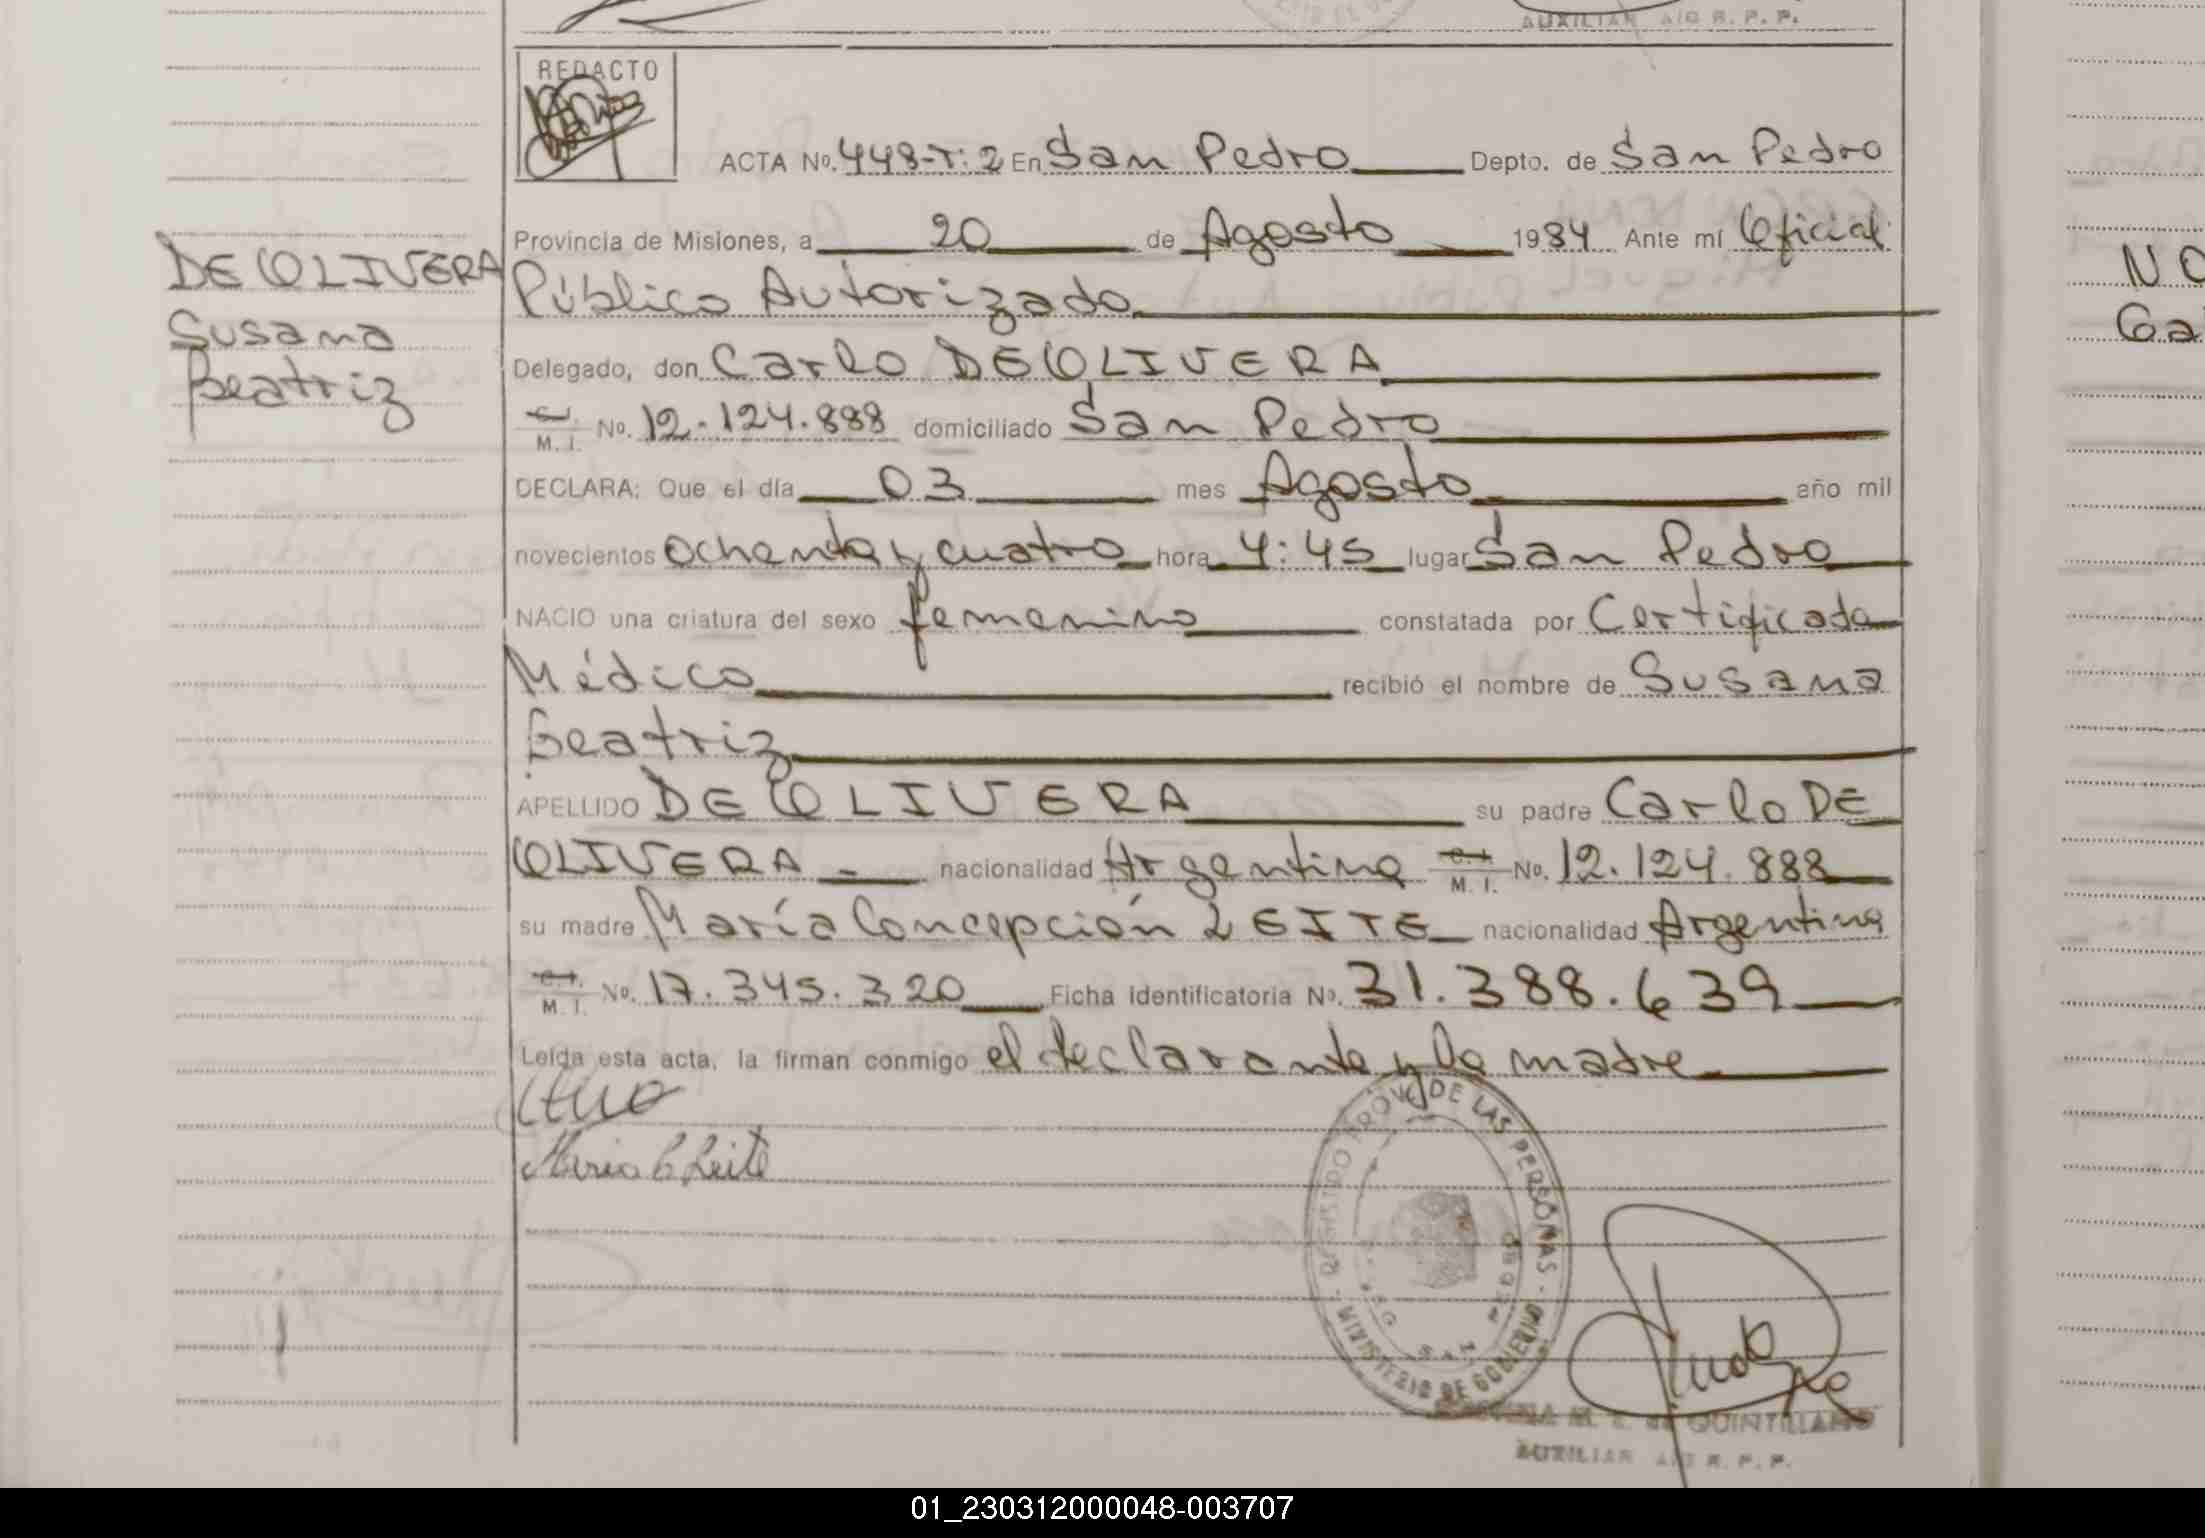 AUXILIAR A/C R. P. P.
REDACTO
ACTA No. 448-T: 2 En San Pedro Depto. de San Pedro
Provincia de Misiones, a 20 de Agosto 1984 Ante mí Oficial
Público Autorizado
Delegado, don Carlo DE OLIVERA
M. I. No. 12.124.888 domiciliado San Pedro
DECLARA: Que el día 03 mes Agosto año mil
novecientos ochenta y cuatro hora 4:45 lugar San Pedro
NACIO una criatura del sexo femenino constatada por Certificado
Médico recibió el nombre de Susana
Beatriz
APELLIDO DE OLIVERA su padre Carlo DE
OLIVERA nacionalidad Argentina C.I. M. I. No. 12.124.888
su madre María Concepción LEITE nacionalidad Argentina
C.I. M. I. No. 17.345.320 Ficha identificatoria No. 31.388.639
Leída esta acta, la firman conmigo el declarante y la madre
Maria C Leite
DE OLIVERA
Susana
Beatriz
REGISTRO PROV. DE LAS PERSONAS
MINISTERIO DE GOBIERNO
SAN PEDRO
M. E. de QUINTILLANO
AUXILIAR A/C R. P. P.
NO
Ga
01_230312000048-003707